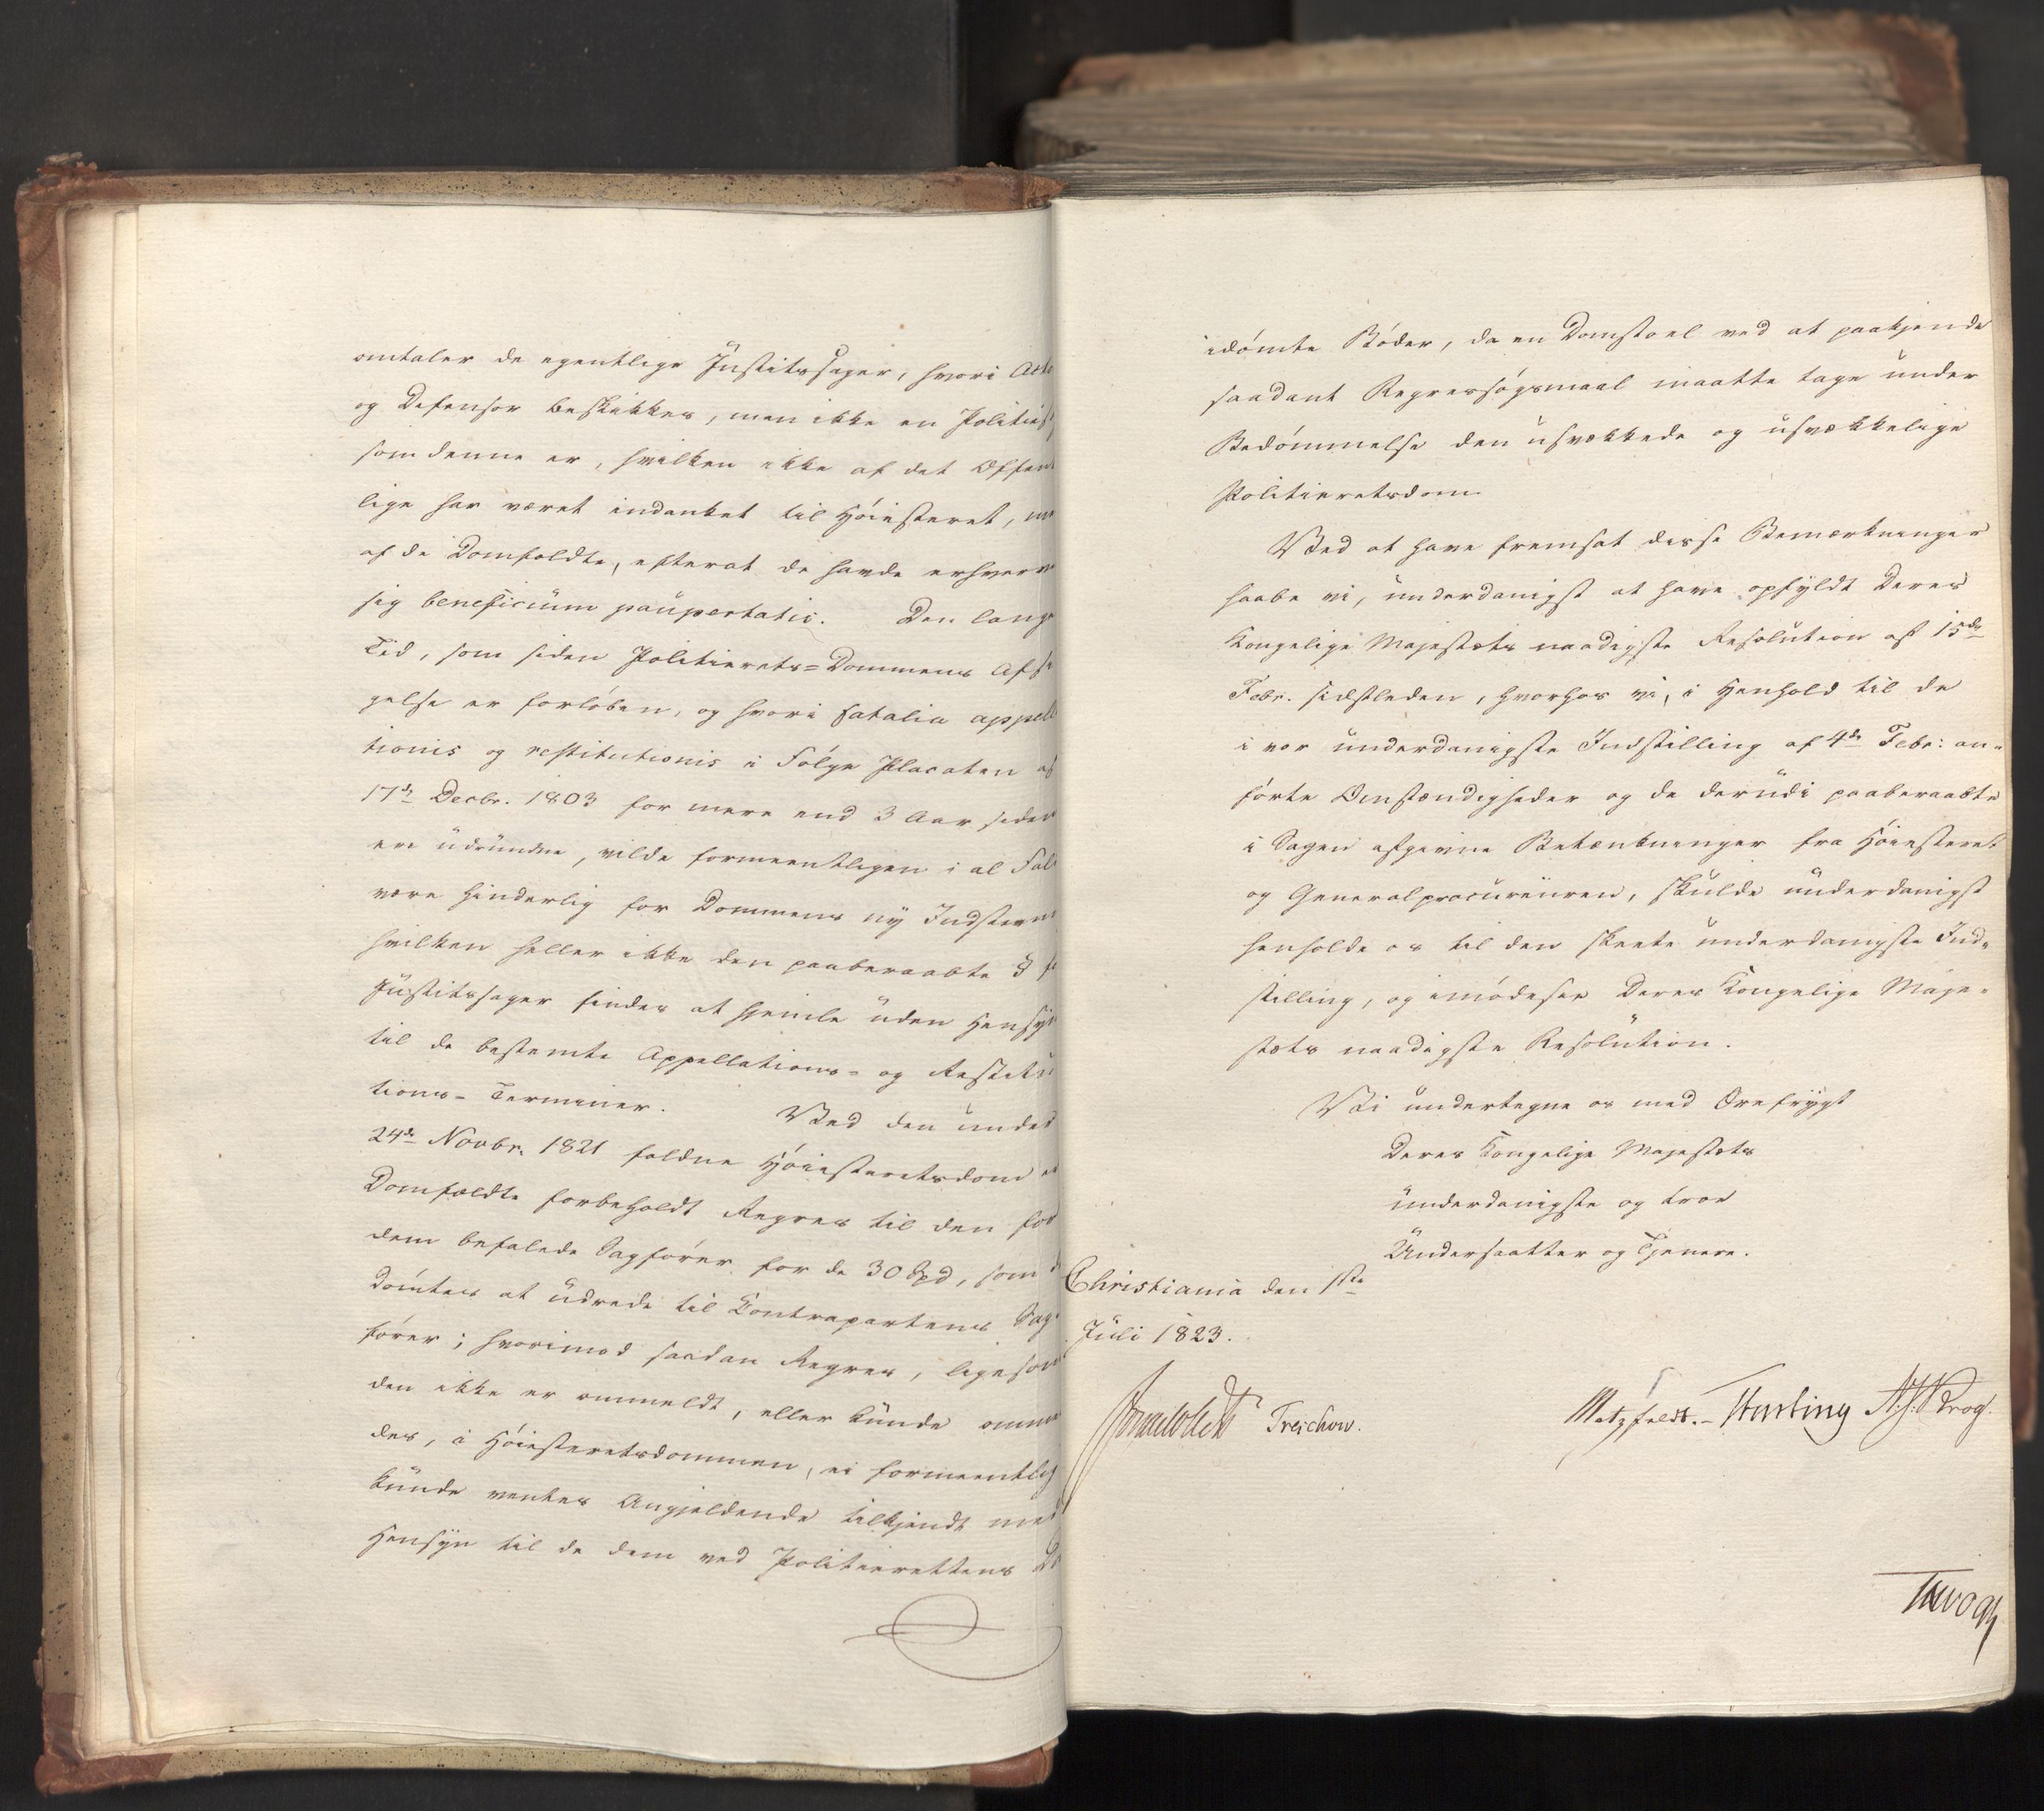 omtaler de egentlige Justitssager, hvori Acto
og Defensor beskikkes, men ikke en Polities
som denne er, hvilken ikke af det Offent
lige har været indanket til Höiesteret, me
af de Domfældte, efterat de havde erhverv
sig beneficium paupertatis. Den lange
Tid, som siden Politierets=Dommens Afsi
gelse er forlöben, og hvori fatalia appella
tionis og restitutionis i Fölge Placaten af
17de Decbr. 1803 for mere end 3 Aar siden
ere udrundne, vilde formeentligen i al Fald
være hinderlig for Dommens ny Indstevn
hvilken heller ikke den paaberaabte §
Justitssager findes at hjemle uden Hensyn
til de bestemte Appellations- og Restitu
tions-Terminer. Ved den under
24de Novbr. 1821 faldne Höiesteretsdom er
Domfældte forbeholdt Regres til den for
dem befalede Sagförer for de 30 Spd, som d
dömtes at udrede til Contrapartens Sag-
förer; hvorimod saadan Regres, ligesom
den ikke er ommeldt, eller kunde omme
des, i Höiesteretsdommen, ei formeentlig
kunde ventes Angjeldende tilkjendt med
Hensyn til de dem ved Politierettens Do
idömte Böder, da en Domstoel ved at paakjende
saadant Regressögsmaal maatte tage under
Bedömmelse den usvækkede og usvækkelige
Politieretsdom.
Ved at have fremsat disse Bemærkninger
haabe vi, underdanigst at have opfyldt Deres
Kongelige Majestæts naadigste Resolution af 15de
Febr. sidstleden, hvorhos vi, i Henhold til de
i vor underdanigste Indstilling af 4de Febr: an-
förte Omstændigheder og de derudi paaberaabte
i Sagen afgivne Betænkninger fra Höiesteret
og Generalprocureuren, skulde underdanigst
henholde os til den skeete underdanigste Ind-
stilling, og imödesee Deres Kongelige Maje-
stæts naadigste Resolution.
Vi undertegne os med Ærefrygt
Deres Kongelige Majestæts
underdanigste og troe
Undersaatter og Tjenere.
Christiania den 1ste
Juli 1823.
Sommerhielm Treschow. Motzfeldt. Hersleb A. J. Krog.
J. H. Vogt